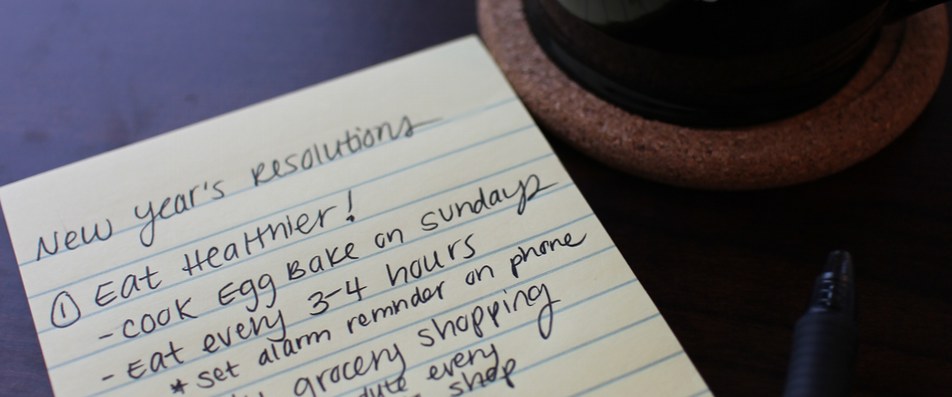 New Year's resolutions
① Eat Healthier!
- cook Egg Bake on sundays
- Eat every 3-4 hours
* set alarm reminder on phone
grocery shopping
every
shop